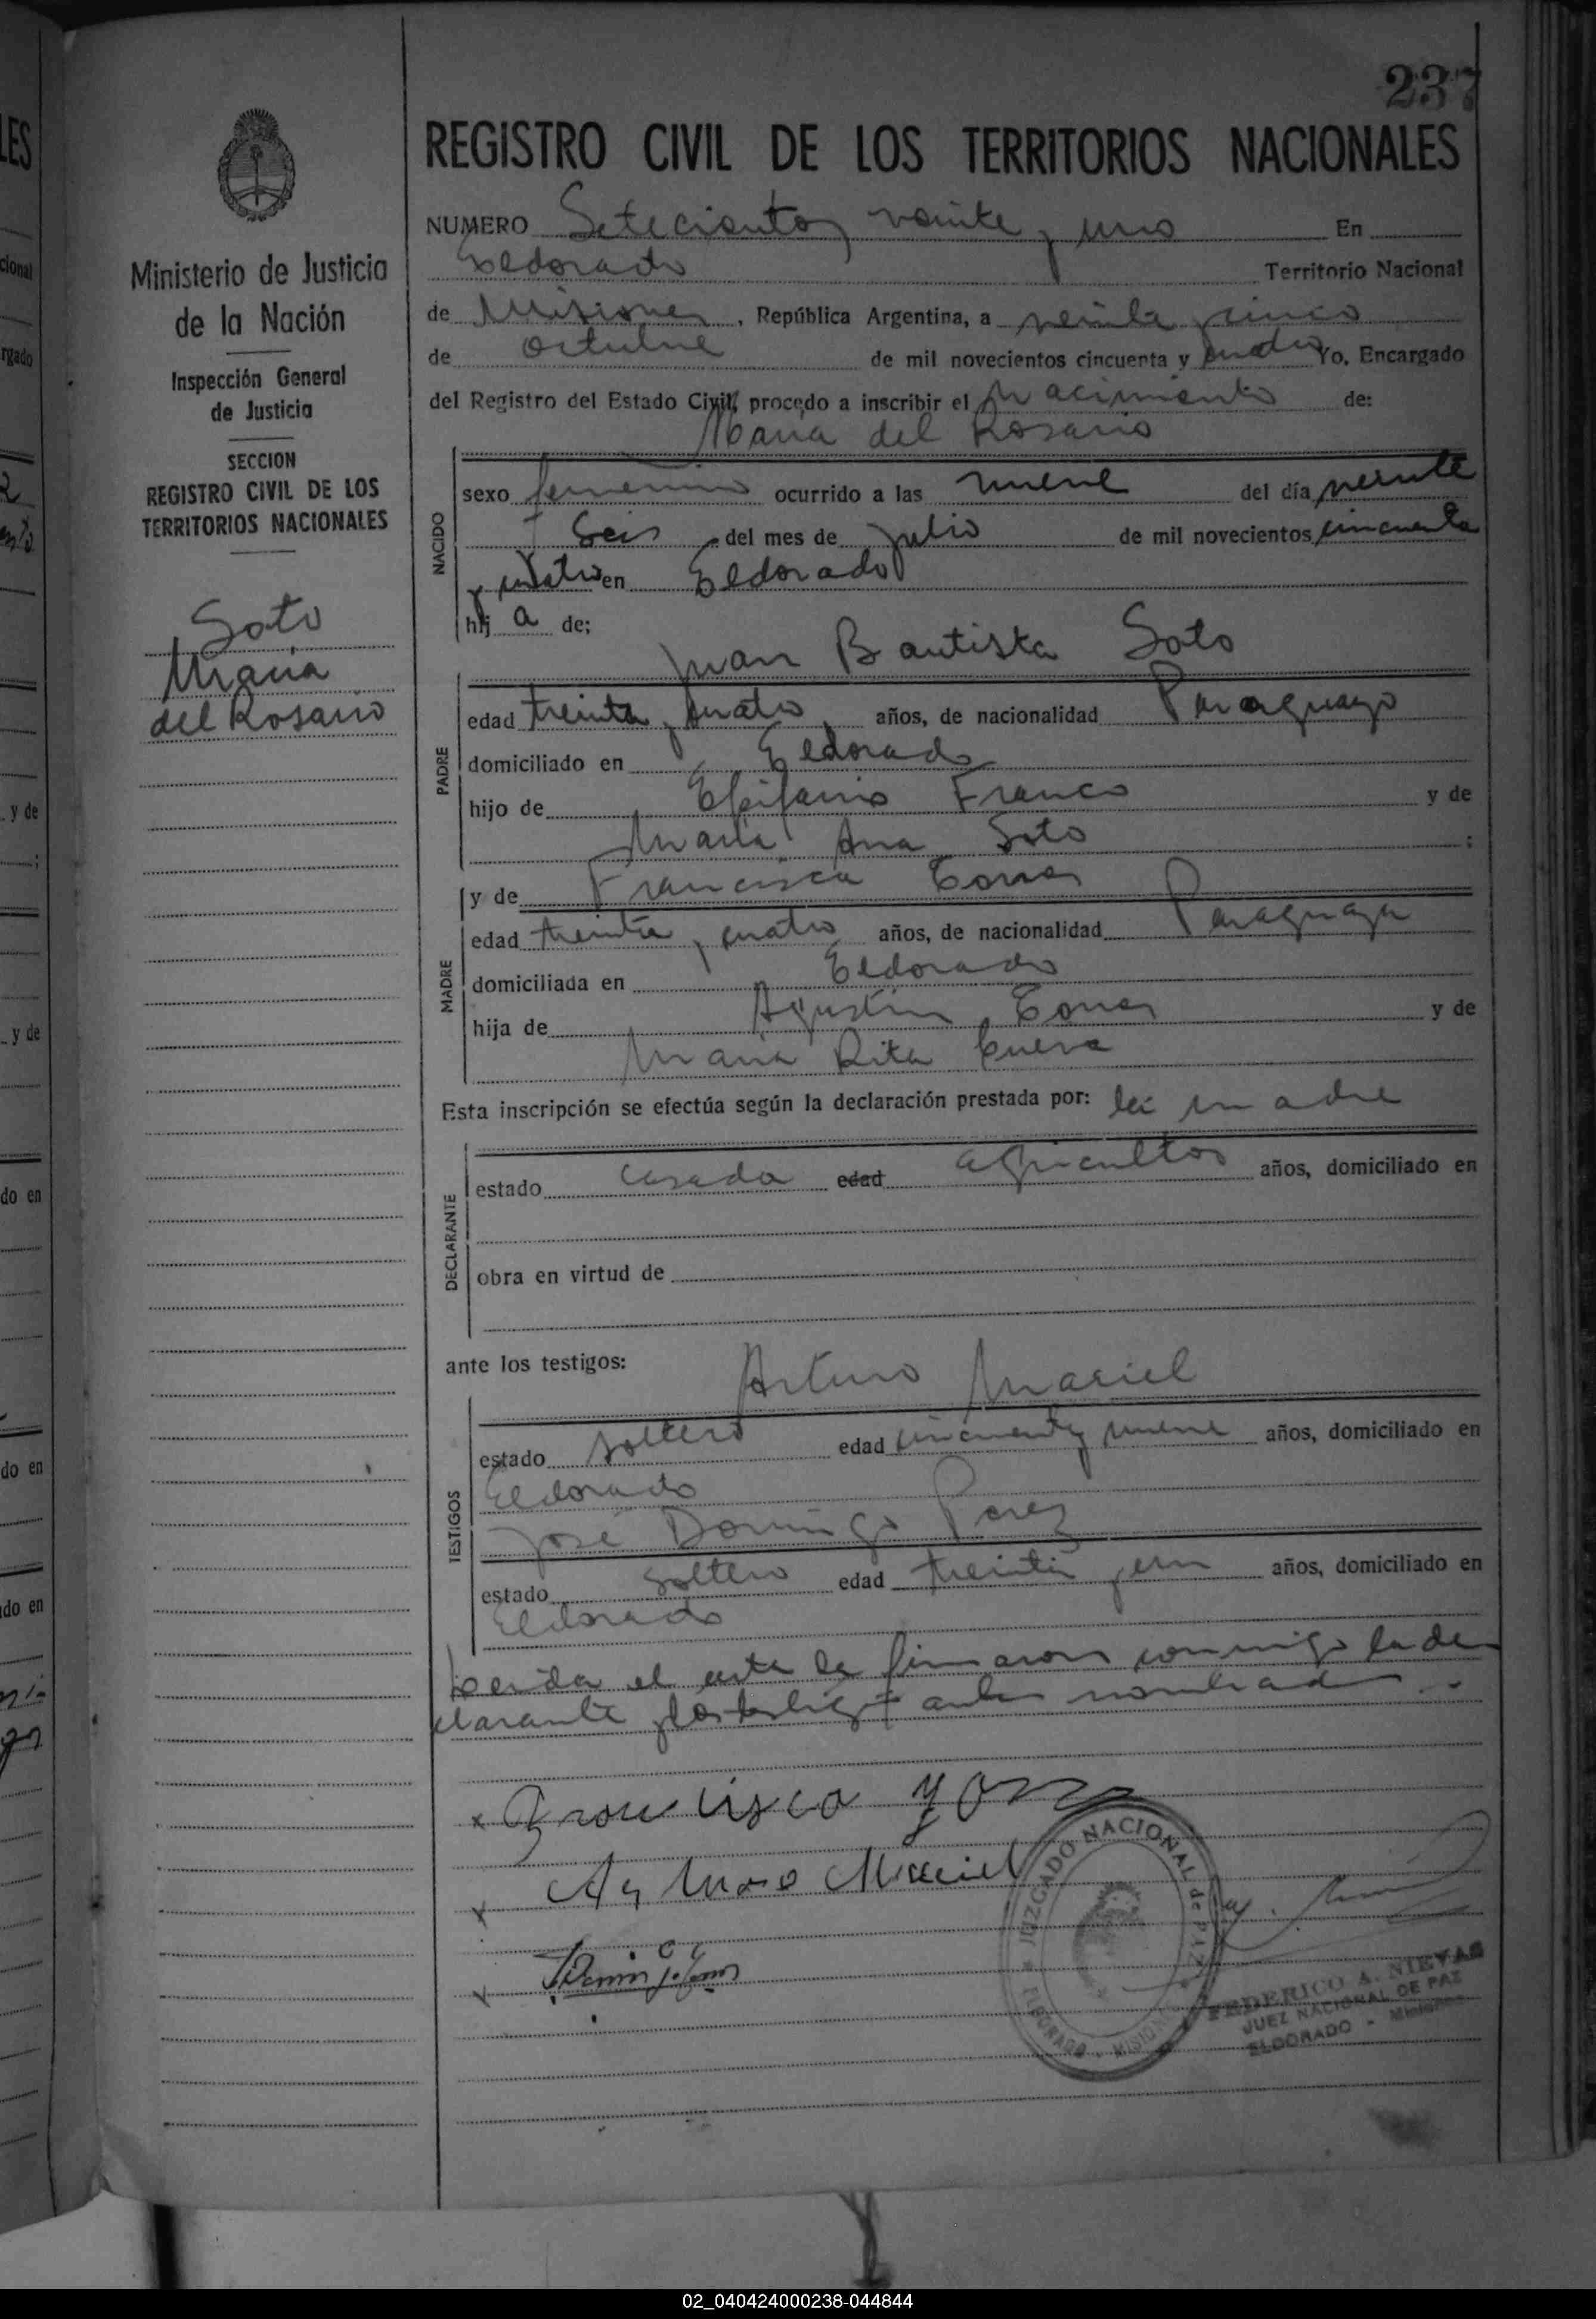 237
REGISTRO CIVIL DE LOS TERRITORIOS NACIONALES
NUMERO Setecientos veinte y uno En
Eldorado Territorio Nacional
de Misiones, República Argentina, a veinte y cinco
de octubre de mil novecientos cincuenta y cuatro Yo, Encargado
del Registro del Estado Civil, procedo a inscribir el nacimiento de:
Maria del Rosario
NACIDO
sexo femenino ocurrido a las nueve del día veinte
y seis del mes de julio de mil novecientos cincuenta
y cuatro en Eldorado
hij a de;
Juan Bautista Soto
PADRE
edad treinta y cuatro años, de nacionalidad Paraguayo
domiciliado en Eldorado
hijo de Epifanio Franco y de
Maria Ana Soto ;
y de Francisca Torres
MADRE
edad treinta y cuatro años, de nacionalidad Paraguaya
domiciliada en Eldorado
hija de Agustin Torres y de
Maria Rita Cueva
Esta inscripción se efectúa según la declaración prestada por: la madre
DECLARANTE
estado casada edad agricultor años, domiciliado en
obra en virtud de
ante los testigos:
Arturo Maciel
TESTIGOS
estado soltero edad cincuenta y nueve años, domiciliado en
Eldorado
José Domingo Perez
estado soltero edad treinta y un años, domiciliado en
Eldorado
Leida el acta la firmaron conmigo la de
clarante y los testigos antes nombrados.
x Francisca
x Arturo Maciel
x
JUZGADO NACIONAL de PAZ
ELDORADO - MISIONES
FEDERICO A. NIEVAS
JUEZ NACIONAL DE PAZ
ELDORADO - Misiones
Ministerio de Justicia
de la Nación
Inspección General
de Justicia
SECCION
REGISTRO CIVIL DE LOS
TERRITORIOS NACIONALES
Soto
Maria
del Rosario
LES
cional
rgado
y de
y de
do en
do en
do en
02_040424000238-044844